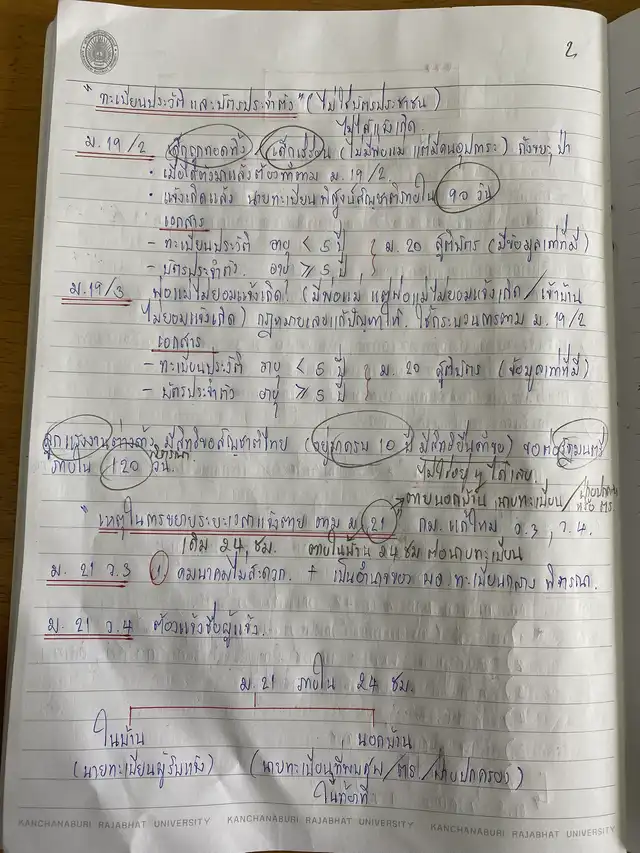 2
"ทะเบียนประวัติ และบัตรประจำตัว" (ไม่ใช่บัตรประชาชน)
ไม่ได้แจ้งเกิด
ม.19/2 เด็กถูกทอดทิ้ง / เด็กเร่ร่อน (ไม่มีพ่อแม่ แต่มีคนอุปการะ) ถังขยะ, ป่า
• เมื่อได้ตัวมาแล้วต้องทำตาม ม.19/2.
• แจ้งเกิดแล้ว นายทะเบียนพิสูจน์สัญชาติภายใน 90 วัน
เอกสาร
– ทะเบียนประวัติ อายุ < 5 ปี } ม.20 สูติบัตร (มีข้อมูลเท่าที่มี)
– บัตรประจำตัว. อายุ ≥ 5 ปี
ม.19/3 พ่อแม่ไม่ยอมแจ้งเกิด! (มีพ่อแม่ แต่พ่อแม่ไม่ยอมแจ้งเกิด/เจ้าบ้าน
ไม่ยอมแจ้งเกิด) กฎหมายเลยแก้ปัญหาให้. ใช้กระบวนการตาม ม.19/2
เอกสาร
– ทะเบียนประวัติ อายุ < 5 ปี } ม.20 สูติบัตร (ข้อมูลเท่าที่มี)
– บัตรประจำตัว อายุ ≥ 5 ปี
ลูกแรงงานต่างด้าว มีสิทธิขอสัญชาติไทย (อยู่มาครบ 10 ปี มีสิทธิยื่นคำขอ) ขอต่อรัฐมนตรี
ภายใน 120 วัน. ไม่ใช่อยู่ๆ ได้เลย.
ตายนอกบ้าน นายทะเบียน/ฝ่ายปกครอง
"เหตุในการขยายระยะเวลาแจ้งตาย ตาม ม.21 กม. แก้ใหม่ ว.3, ว.4.
เดิม 24 ชม. ตายในบ้าน 24 ชม ต่อนายทะเบียน
ม.21 ว.3 1 คมนาคมไม่สะดวก. + เป็นอำนาจของ ผอ.ทะเบียนกลาง พิจารณา.
ม.21 ว.4 ต้องแจ้งชื่อผู้แจ้ง.
ม.21 ภายใน 24 ชม.
ในบ้าน นอกบ้าน
(นายทะเบียนผู้รับแจ้ง) (นายทะเบียนที่พบศพ/ตร./ฝ่ายปกครอง)
ในท้องที่
KANCHANABURI RAJABHAT UNIVERSITY KANCHANABURI RAJABHAT UNIVERSITY KANCHANABURI RAJABHAT UNIVERSITY